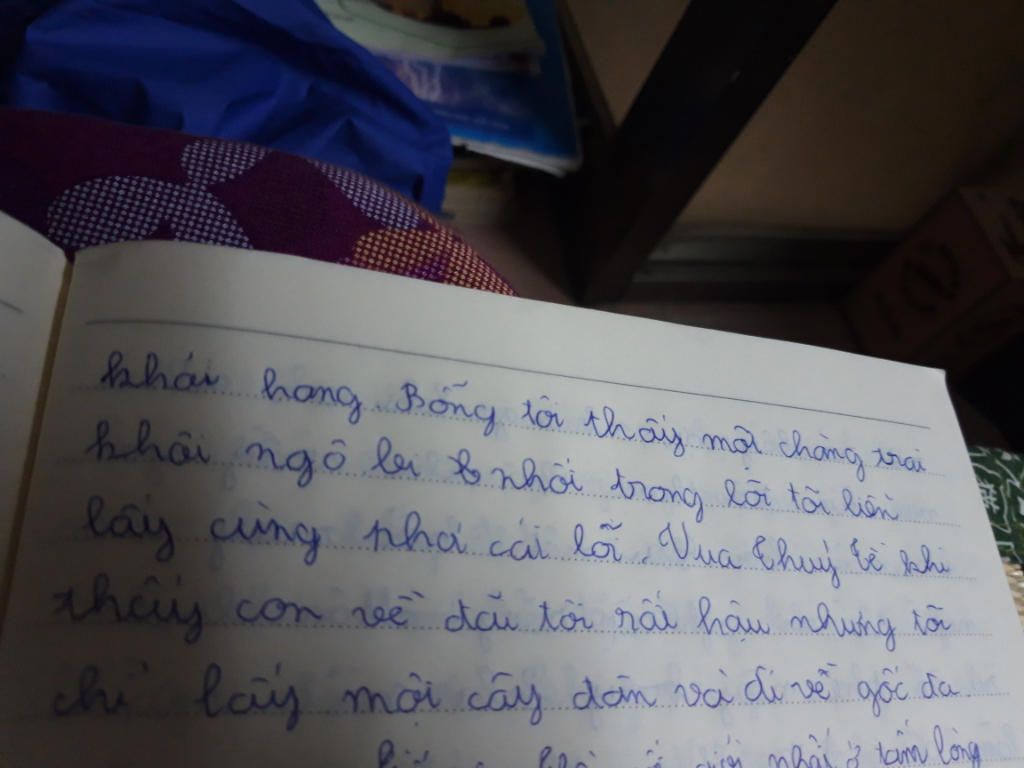 khỏi hang Bỗng tôi thấy một chàng trai
khôi ngô bị nhốt trong lõi tôi liền
lấy cùng phá cái lỗ. Vua Thuỷ Tề khi
thấy con về đãi tôi rất hậu nhưng tôi
chỉ lấy một cây đàn và đi về gốc đa.
nhất ở tấm lòng